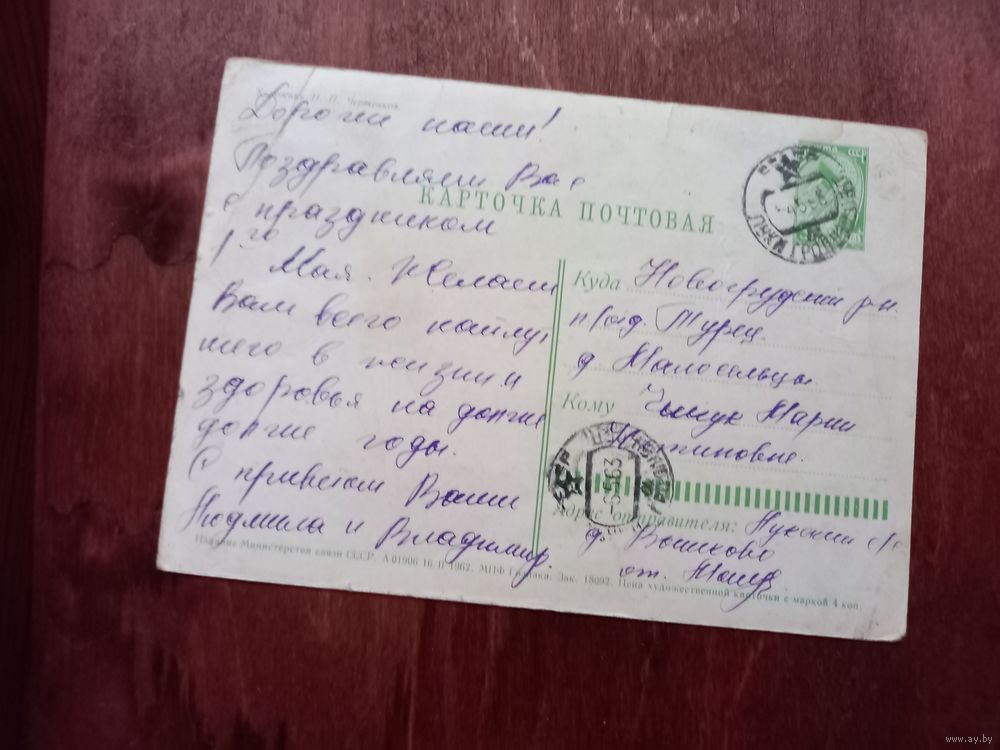 Художник П. П. Чертенков.
Дорогие наши!
Поздравляем Вас
с праздником
1го
Мая. Желаем
Вам всего наилуч
шего в жизни и
здоровья на долгие
долгие годы.
С приветом Ваши
Людмила и Владимир.
КАРТОЧКА ПОЧТОВАЯ
ПОЧТА СССР
Куда Новогрудский р-н.
п/отд. Турец.
д Малосельцы
Кому Марии
СССР
-5563
Адрес отправителя:
д. Вышково
от.
Издание Министерства связи СССР. А 01906 16.II 1962. МПФ Гознака. Зак. 18092. Цена художественной карточки с маркой 4 коп.
www.ay.by